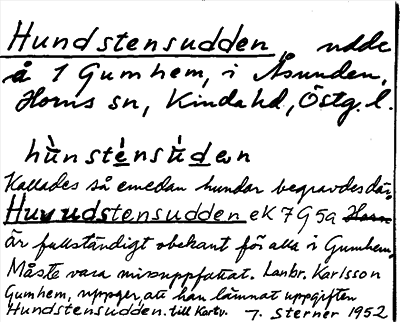 Hundstensudden, udde
å 1 Gumhem, i Åsunden,
Horns sn, Kinda hd, Östg. l.
hùnsténsùden
Kallades så emedan hundar begravdes där.
Huvudstensudden ek 7 G 5a Horn
är fullständigt obekant för alla i Gumhem.
Måste vara missuppfattat. Lanbr. Karlsson
Gumhem, uppger, att han lämnat uppgiften
Hundstensudden. till Kartv. J. Sterner 1952